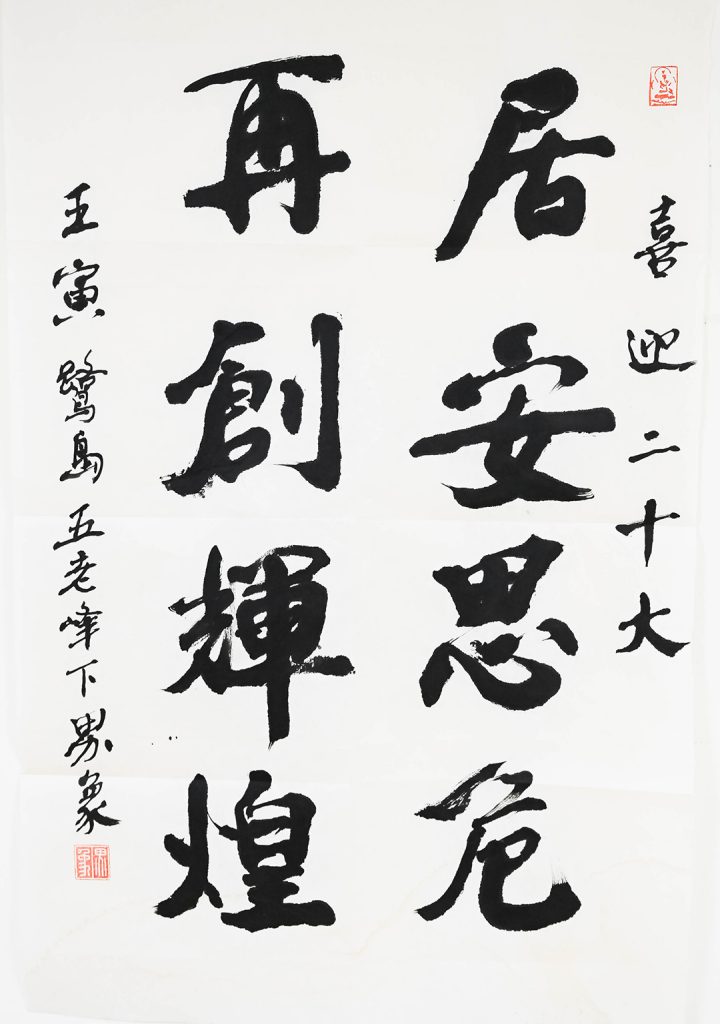 喜迎二十大
居安思危
再創輝煌
壬寅鷺島五老峰下象